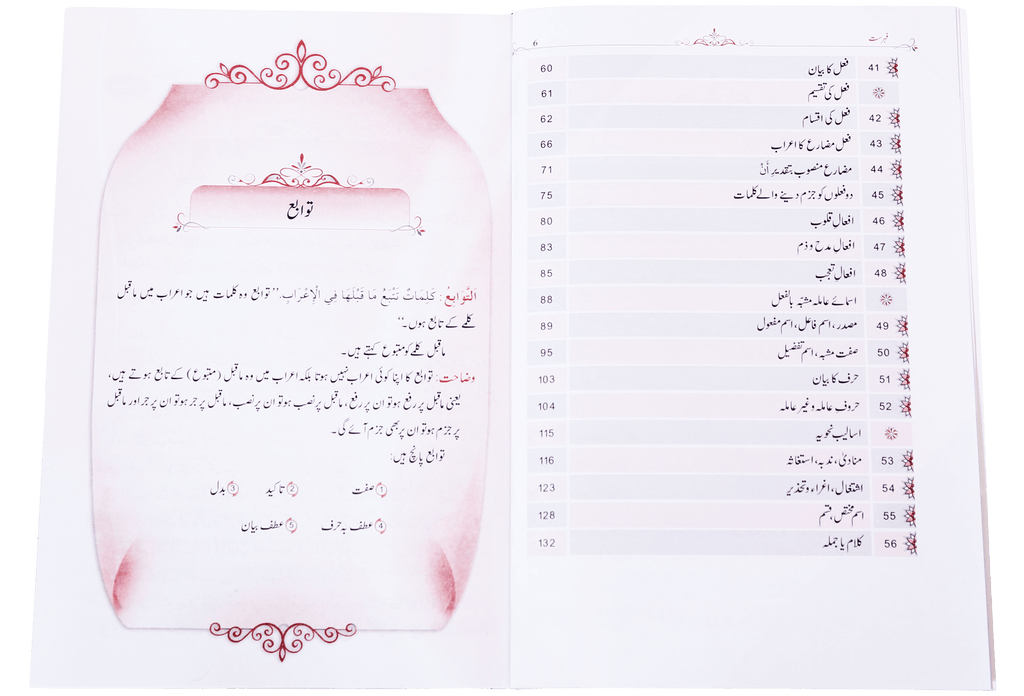 فہرست 6
41 فعل کا بیان 60
فعل کی تقسیم 61
42 فعل کی اقسام 62
43 فعل مضارع کا اعراب 66
44 مضارع منصوب بتقدیرِ أَنْ 71
45 دو فعلوں کو جزم دینے والے کلمات 75
46 افعالِ قلوب 80
47 افعالِ مدح و ذم 83
48 افعالِ تعجب 85
اسمائے عاملہ مشبّہ بالفعل 88
49 مصدر، اسم فاعل، اسم مفعول 89
50 صفت مشبہ، اسم تفضیل 95
51 حرف کا بیان 103
52 حروف عاملہ و غیر عاملہ 104
اسالیب نحویہ 115
53 منادیٰ، ندبہ، استغاثہ 116
54 اشتغال، اغراء و تحذیر 123
55 اسم مختص، قسم 128
56 کلام یا جملہ 132
توابع
اَلتَّوَابِعُ: كَلِمَاتٌ تَتْبَعُ مَا قَبْلَهَا فِي الْإِعْرَابِ. ’’توابع وہ کلمات ہیں جو اعراب میں ماقبل
کلمے کے تابع ہوں۔‘‘
ماقبل کلمے کو متبوع کہتے ہیں۔
وضاحت: توابع کا اپنا کوئی اعراب نہیں ہوتا بلکہ اعراب میں وہ ماقبل (متبوع) کے تابع ہوتے ہیں،
یعنی ماقبل پر رفع ہو تو ان پر رفع، ماقبل پر نصب ہو تو ان پر نصب، ماقبل پر جر ہو تو ان پر جر اور ماقبل
پر جزم ہو تو ان پر بھی جزم آئے گی۔
توابع پانچ ہیں:
1 صفت 2 تاکید 3 بدل
4 عطف بہ حرف 5 عطف بیان